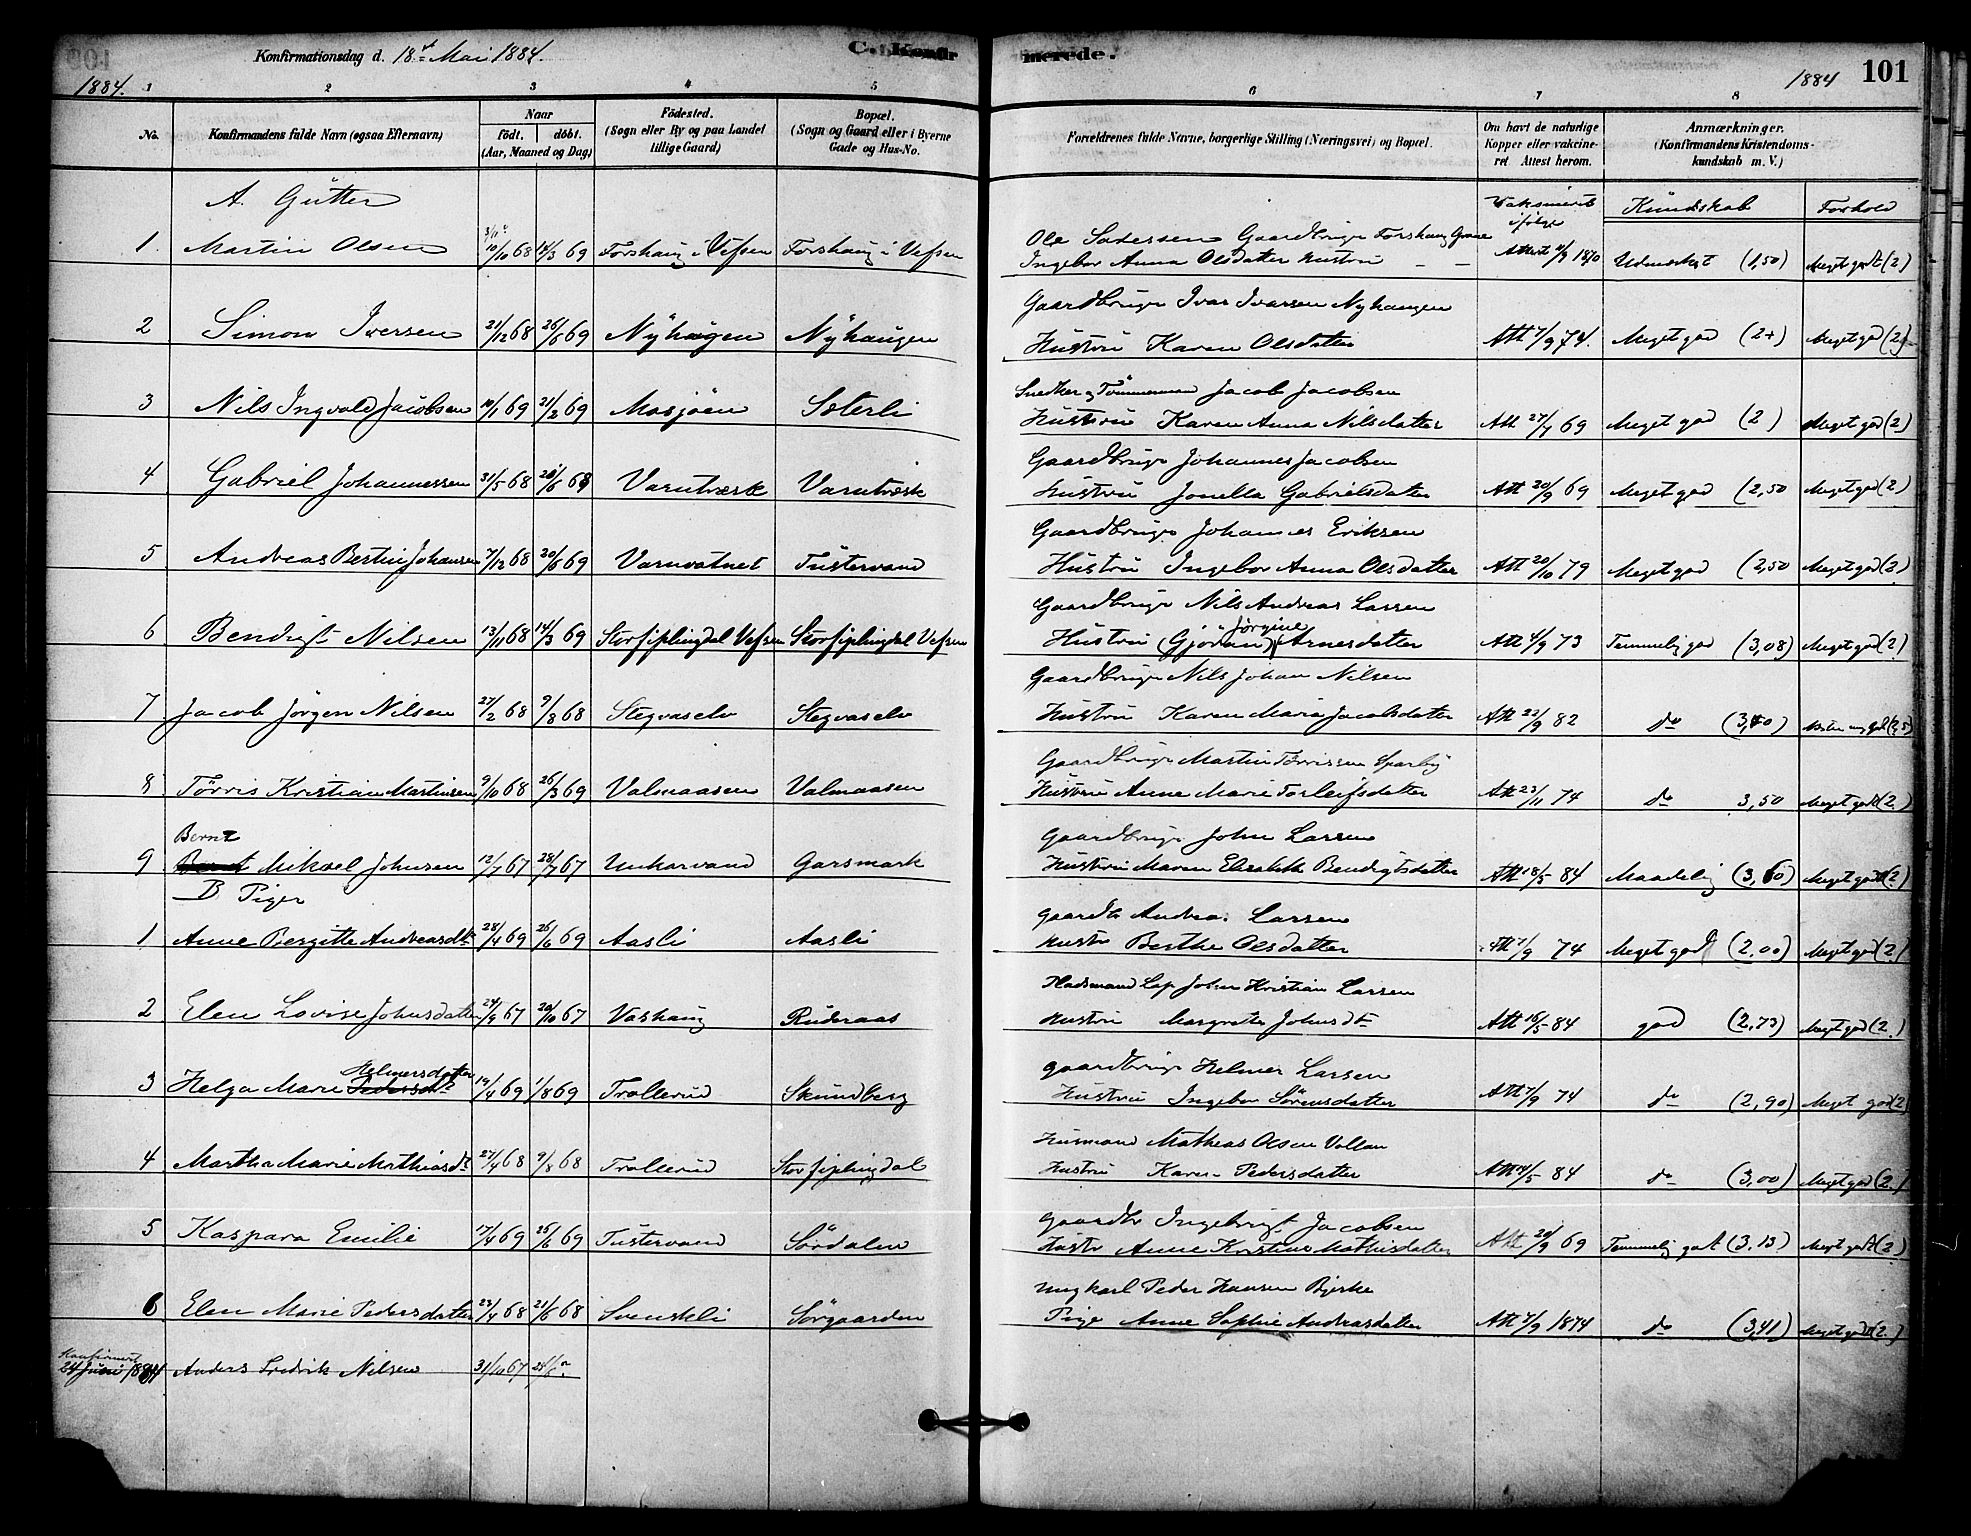 Konfirmationsdag d. 18de Mai 1884. C. Konfir merede. 1884 101
1884. 1 2 3 4 5 6 7 8
No. Konfirmandens fulde Navn (ogsaa Efternavn) Naar födt. döbt. (Aar, Maaned og Dag) Födested. (Sogn eller By og paa Landet tillige Gaard) Bopæl. (Sogn og Gaard eller i Byerne Gade og Hus-No. Forældrenes fulde Navne, borgerlige Stilling (Næringsvei) og Bopæl. Om havt de naturlige Kopper eller vakcineret. Attest herom. Anmærkninger. (Konfirmandens Kristendomskundskab m. V.)
A. Gutter Vaksineret ifølge Kundskab Forhold
1. Martin Olsen 10/10 68 14/3 69 Forshaug i Vefsen Forshaug i Vefsen
Ole Gaardbruger Forshaug
Ingebor Anna Olsdatter Hustru Attest 1870 Udmerket (1,50) Meget godt (2)
Gaardbruger Ivar Ivarsen Nyhaugen
2 Simon Iversen 21/12 68 26/6 69 Nyhaugen Nyhaugen Hustru Karen Olsdatter Att 7/9 74. Meget god (2+) Meget god (2)
Snedker og Tömmermand Jacob Jacobsen
3 Nils Ingvald Jacobsen 10/1 69 21/2 69 Mosjöen Sæterli Hustru Karen Anna Nilsdatter Att 27/7 69 Meget god (2) Meget god (2)
Gaardbruger Johannes Jacobsen
4 Gabriel Johannessen 31/5 68 28/6 68 Varntræsk Varntræsk Hustru Jonella Gabrielsdatter Att 20/9 69 Meget god (2,50 Meget god (2)
Gaardbruger Johannes Eriksen
5 Andreas Bertin Johansen 7/12 68 20/6 69 Varnvatnet Tustervand Hustru Ingebor Anna Olsdatter Att 20/10 79 Meget god (2,50 Meget god (2)
Gaardbruger Nils Andreas Larsen
6 Bendigt Nilsen 13/11 68 14/3 69 Storfiplingdal Vefsen Storfiplingdal Vefsen Hustru (Gjöran) Jörgine Arnesdatter Att 4/9 73 Temmelig god (3,08) Meget god (2)
Gaardbruger Nils Johan Nilsen
7 Jacob Jörgen Nilsen 27/2 68 9/8 68 Stegvaselv Stegvaselv Hustru Karen Maria Jacobsdatter Att 22/9 82 do (3,40)
Gaardbruger Martin Törrissen Sparby
8 Törris Kristian Martinsen 9/10 68 26/3 69 Valmaasen Valmaasen Hustru Anne Marie Torleifsdatter Att 23/11 74 do 3,50 Meget god (2)
Gaardbruger John Larsen
9 Bernt Mikael Johnsen 12/7 67 28/7 67 Unkarvand Garsmark Hustru Maren Elisabeth Bendigtsdatter Att 18/5 84 Maadelig (3,60) Meget god (2)
B Piger
Gaardb Andreas Larsen
1 Anne Bergitte Andreasdtr 28/4 69 26/6 69 Aasli Aasli Hustr Berthe Olsdatter Att 7/9 74 Meget god (2,00) Meget god (2)
Pladsmand Lap John Kristian Larsen
2 Elen Lovise Johnsdatter 24/9 67 20/10 67 Vashaug Ruderaas Hustru Margrete Johnsdtr Att 16/5 84 god (2,73) Meget god (2)
Gaardbruger Helmer Larsen
3 Helga Marie Helmersdatter 19/4 69 1/8 69 Trollerud Skundberg Hustru Ingebor Sörensdatter Att 7/9 74 do (2,90) Meget god (2)
Husmand Mathias Olsen Vollan
4 Martha Marie Mathiasdr 27/4 68 9/8 68 Trollerud Storfiplingdal Hustru Karen Pedersdatter Att 84 do (3,00) Meget god (2)
Gaardbr Ingebrigt Jacobsen
5 Kaspara Emilie 17/4 69 26/6 69 Tustervand Sördalen Hustr Anne Kristine Mathisdatter Att 20/9 69 Temmelig godt (3.13) Meget godt (2)
Ungkarl Peder Hansen Bjerke
6 Elen Marie Pedersdatter 23/4 68 21/6 68 Svenskli Sörgaarden Pige Anne Sophie Andreasdatter Att 7/9 1874 do (3,41) Meget god (2)
Konfirmert
24 Juni 1884 Anders Fredrik Nilsen 31/10 67